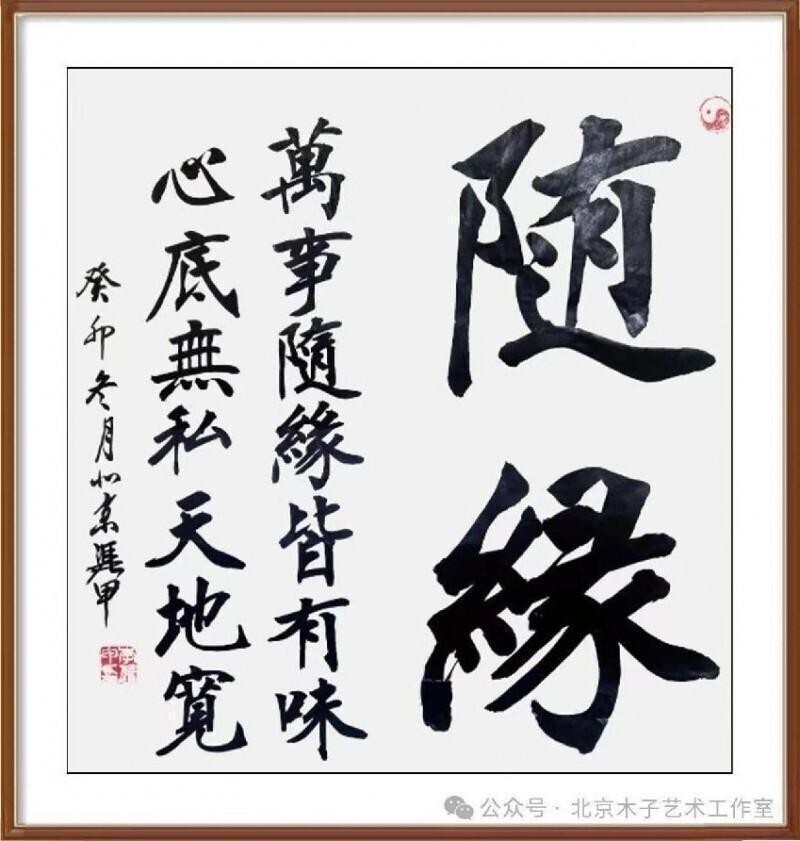 随緣
萬事隨緣皆有味
心底無私天地寬
癸卯冬月北京甲
公众号 · 北京木子艺术工作室